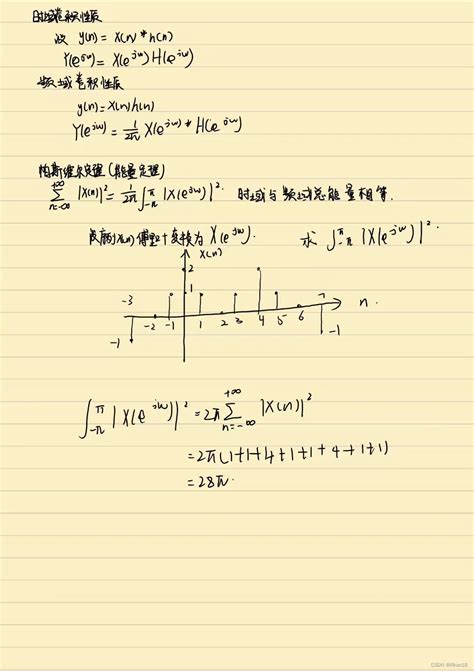 时域卷积性质
设 y(n) = x(n) * h(n)
Y(e^{jω}) = X(e^{jω}) H(e^{jω})
频域卷积性质
y(n) = x(n) h(n)
Y(e^{jω}) = \frac{1}{2π} X(e^{jω}) * H(e^{jω})
帕斯维尔定理(能量定理)
\sum_{n=-∞}^{+∞} |x(n)|^2 = \frac{1}{2π} \int_{-π}^{π} |X(e^{jω})|^2. 时域与频域总能量相等.
x(n) 傅里叶变换为 X(e^{jω}). 求 \int_{-π}^{π} |X(e^{jω})|^2.
x(n)
2
1
-3 -2 -1 1 2 3 4 5 6 7 n.
-1 -1
\int_{-π}^{π} |X(e^{jω})|^2 = 2π \sum_{n=-∞}^{+∞} |x(n)|^2
= 2π(1+1+4+1+1+4+1+1)
= 28π.